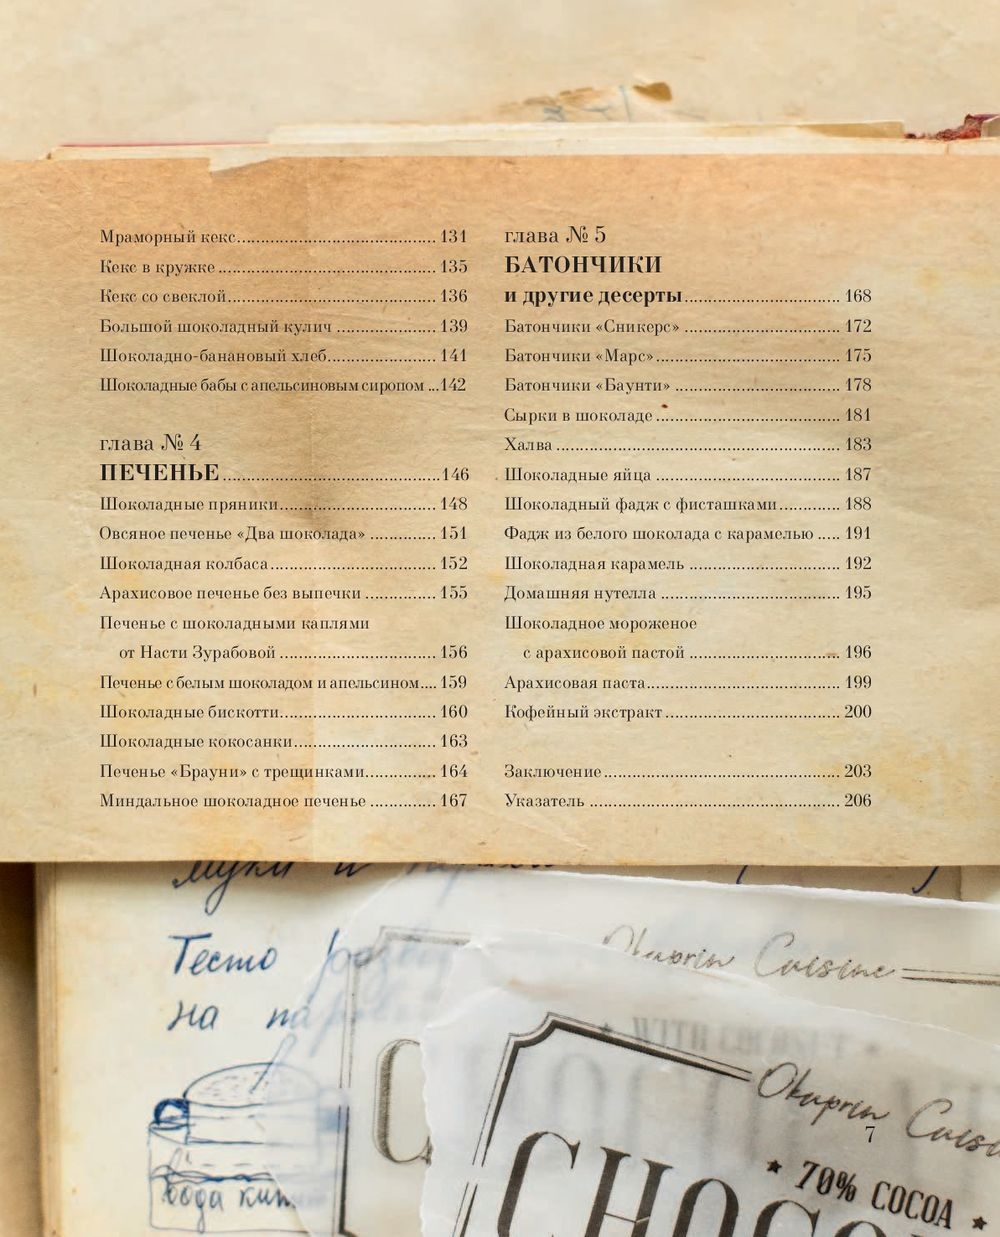 Мраморный кекс.......................................... 131
Кекс в кружке ............................................. 135
Кекс со свеклой........................................... 136
Большой шоколадный кулич ..................... 139
Шоколадно-банановый хлеб....................... 141
Шоколадные бабы с апельсиновым сиропом ...142
глава № 4
ПЕЧЕНЬЕ..............................................146
Шоколадные пряники................................. 148
Овсяное печенье «Два шоколада» .............. 151
Шоколадная колбаса................................... 152
Арахисовое печенье без выпечки ............... 155
Печенье с шоколадными каплями
от Насти Зурабовой ................................. 156
Печенье с белым шоколадом и апельсином.... 159
Шоколадные бискотти................................. 160
Шоколадные кокосанки.............................. 163
Печенье «Брауни» с трещинками............... 164
Миндальное шоколадное печенье .............. 167
глава № 5
БАТОНЧИКИ
и другие десерты................................. 168
Батончики «Сникерс» ................................. 172
Батончики «Марс»....................................... 175
Батончики «Баунти» ................................... 178
Сырки в шоколаде ....................................... 181
Халва ............................................................ 183
Шоколадные яйца ....................................... 187
Шоколадный фадж с фисташками............. 188
Фадж из белого шоколада с карамелью ..... 191
Шоколадная карамель ................................ 192
Домашняя нутелла ...................................... 195
Шоколадное мороженое
с арахисовой пастой ................................ 196
Арахисовая паста......................................... 199
Кофейный экстракт ..................................... 200
Заключение.................................................. 203
Указатель ..................................................... 206
муки и
Тесто
на
вода кип.
Cuisine
WITH COCONUT
7
70% COCOA